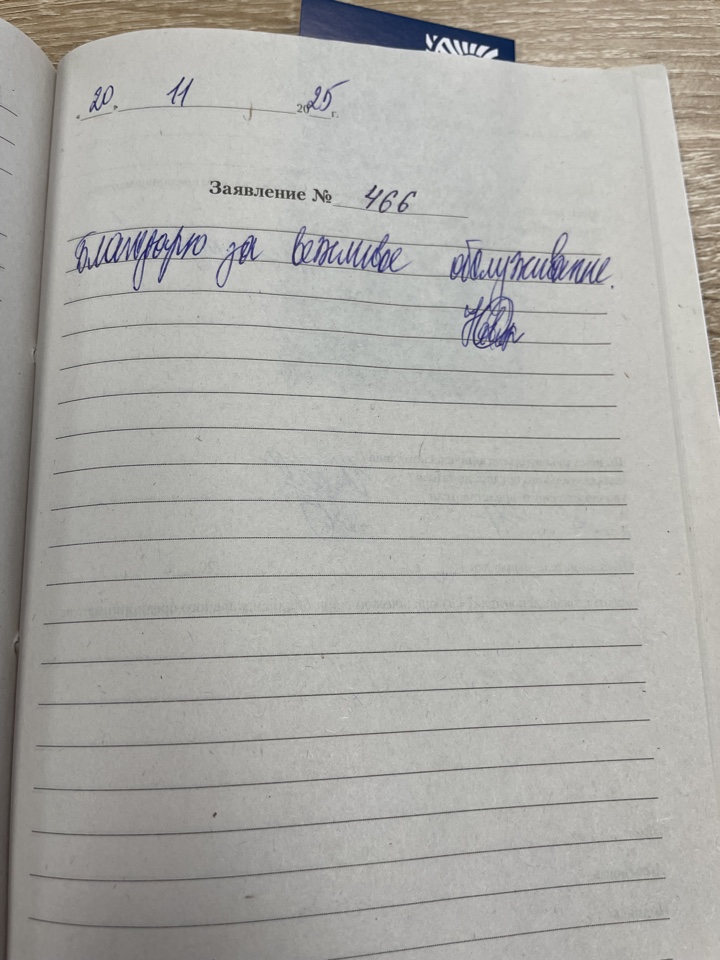 „20" 11 2025 г.
Заявление № 466
Благодарю за вежливое обслуживание.